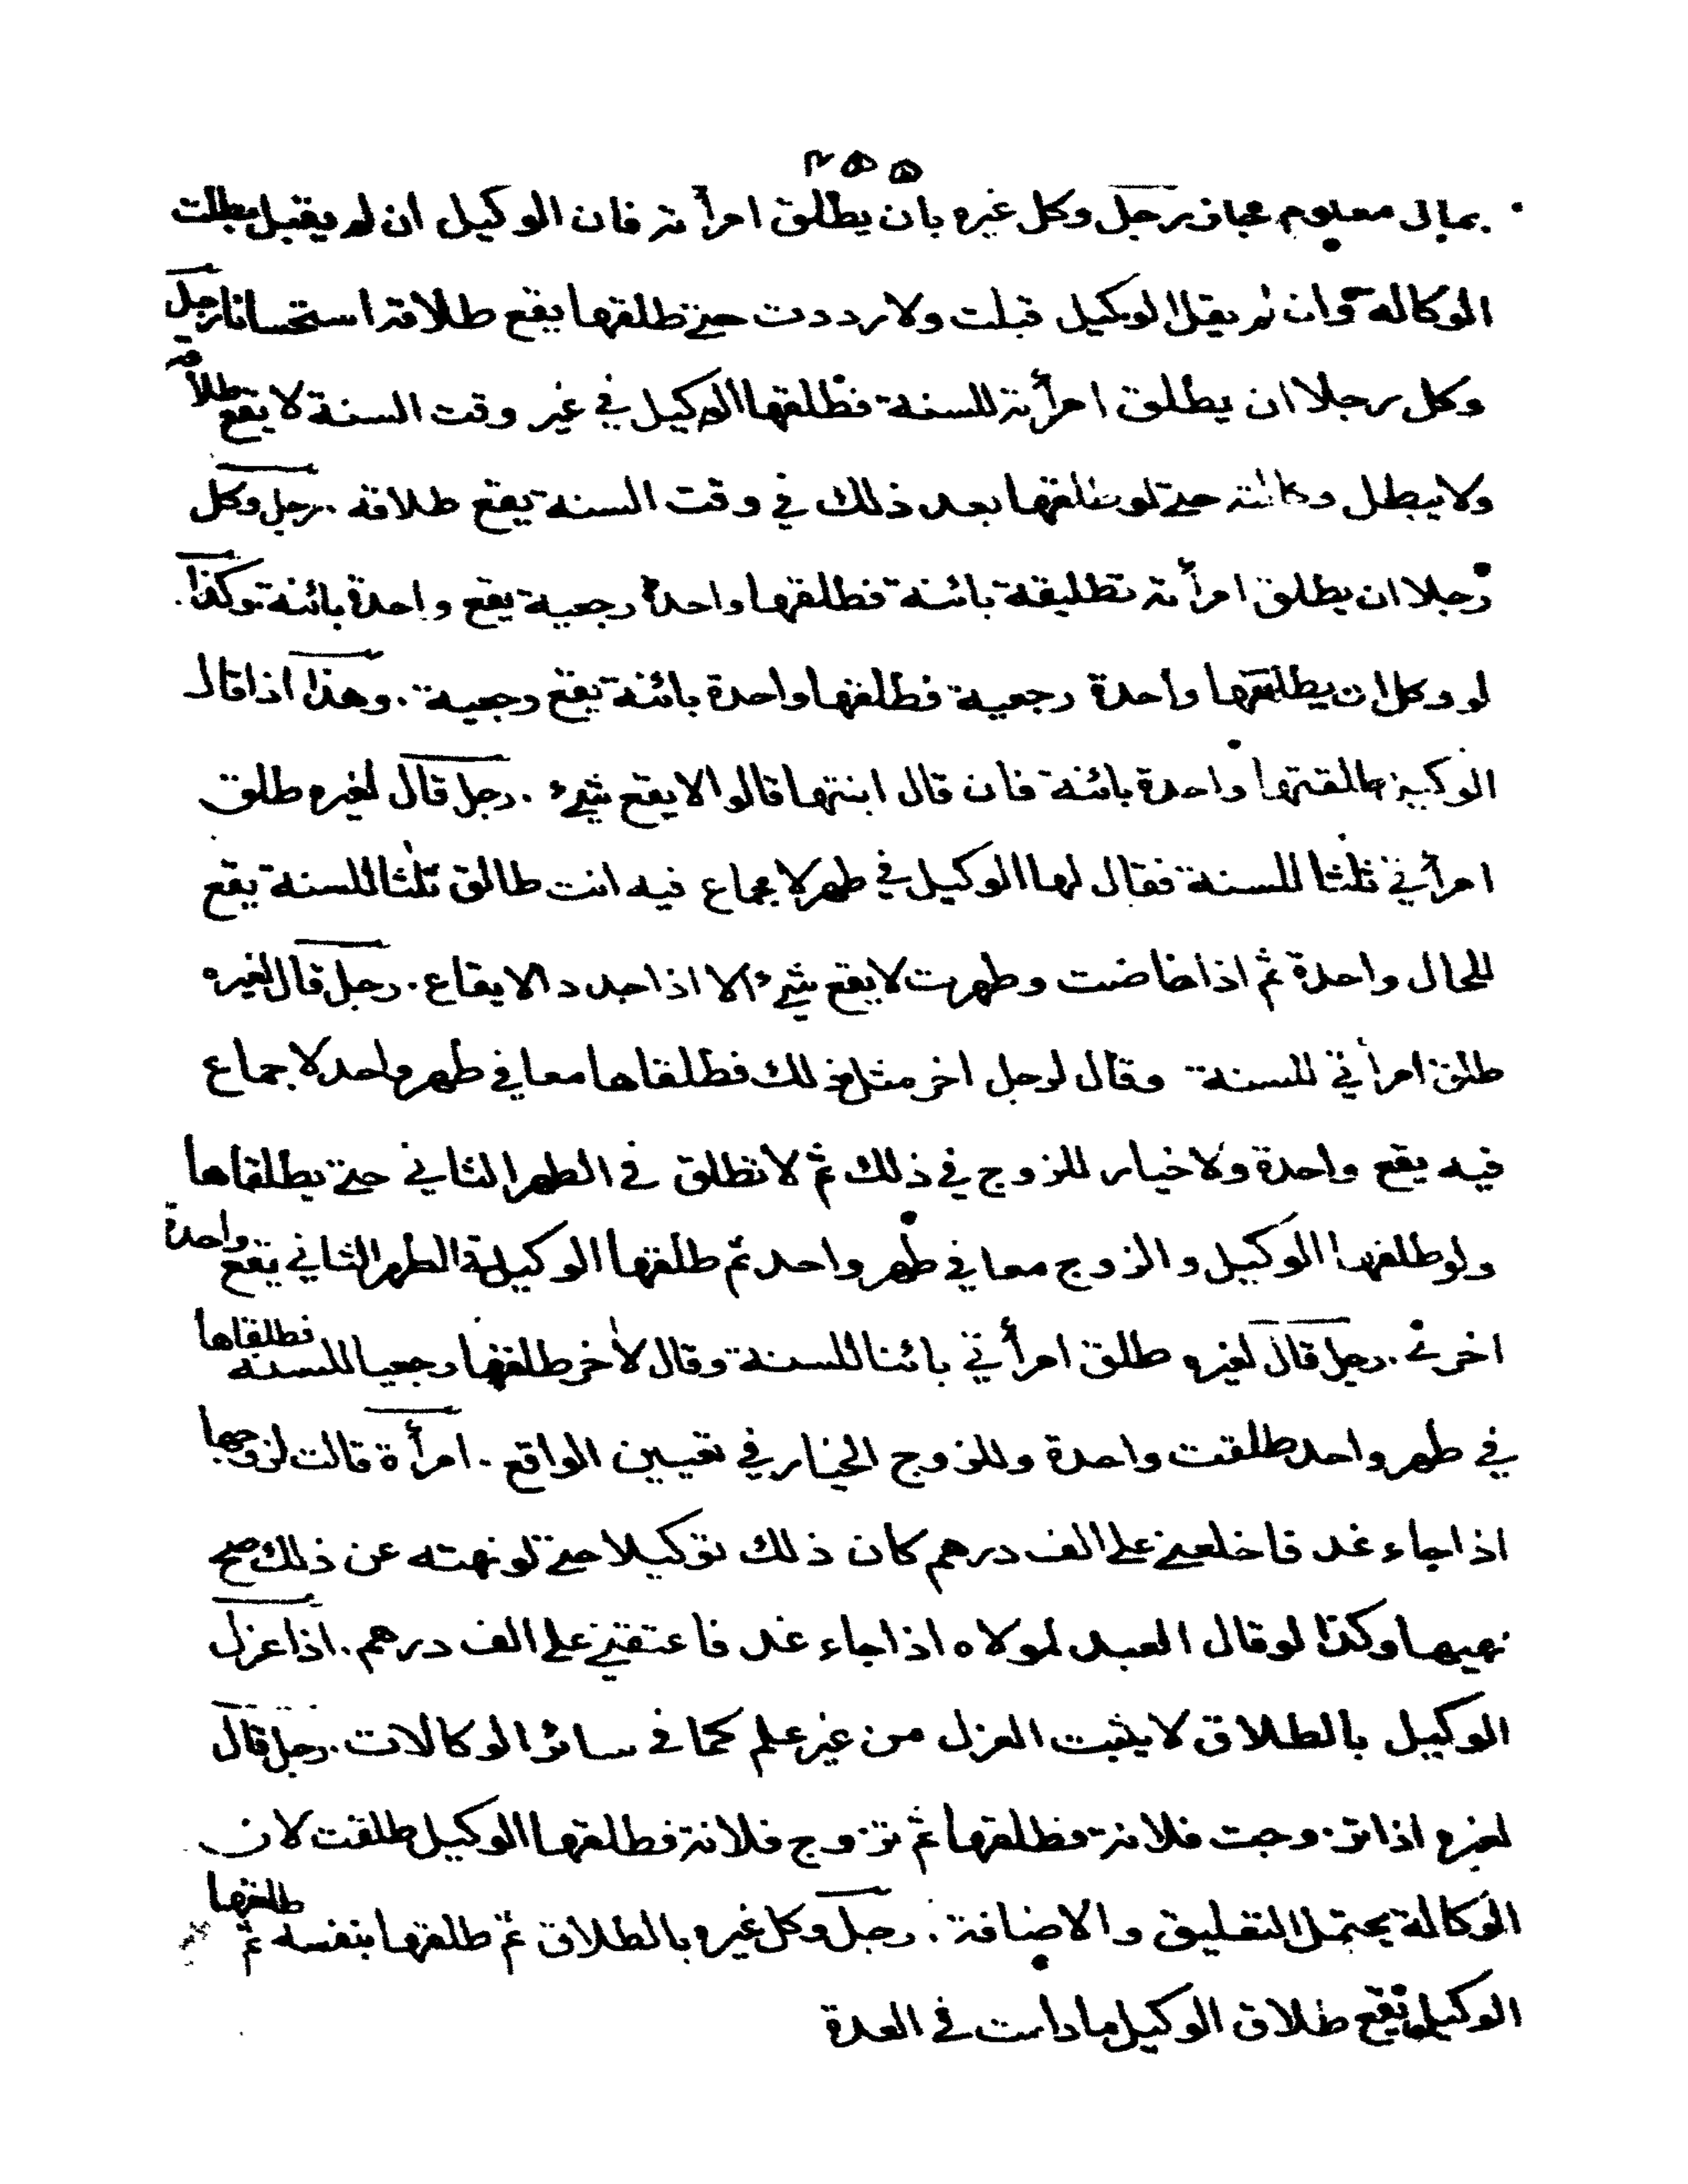 ٢٥٥
بمال معلوم رجل وكل غيره بان يطلق امرأته فان الوكيل ان لم يقبل بطلت
الوكالة وان لم يقل الوكيل قبلت ولا رددت حتى طلقها يقع طلاقه استحسانا رجل
وكل رجلا ان يطلق امرأته للسنة فطلقها الوكيل في غير وقت السنة لا يقع طلاقه
ولا يبطل وكالته حتى لو طلقها بعد ذلك في وقت السنة يقع طلاقه . رجل وكل
رجلا ان يطلق امرأته تطليقة بائنة فطلقها واحدة رجعية يقع واحدة بائنة وكذا .
لو وكل ان يطلقها واحدة رجعية فطلقها واحدة بائنة يقع رجعية . وهذا اذا قال
الوكيل طلقتها واحدة بائنة فان قال ابنتها قالوا لا يقع شيء . رجل قال لغيره طلق
امرأتي ثلثا للسنة فقال لها الوكيل في طهر لا جماع فيه انت طالق ثلثا للسنة يقع
للحال واحدة ثم اذا حاضت وطهرت لا يقع شيء الا اذا جدد الايقاع . رجل قال لغيره
طلق امرأتي للسنة وقال لرجل اخر مثل ذلك فطلقاها معا في طهر واحد لا جماع
فيه يقع واحدة ولا خيار للزوج في ذلك ثم لا تطلق في الطهر الثاني حتى يطلقاها
ولو طلقها الوكيل والزوج معا في طهر واحد ثم طلقها الوكيل في الطهر الثاني يقع واحدة
اخرى . رجل قال لغيره طلق امرأتي بائنا للسنة وقال لأخر طلقها رجعيا للسنة فطلقاها
في طهر واحد طلقت واحدة وللزوج الخيار في تعيين الواقع . امرأة قالت لزوجها
اذا جاء غد فاخلعني على الف درهم كان ذلك توكيلا حتى لو نهته عن ذلك صح
نهيها وكذا لو قال العبد لمولاه اذا جاء غد فاعتقني على الف درهم . اذا عزل
الوكيل بالطلاق لا يثبت العزل من غير علم كما في سائر الوكالات . رجل قال
لغيره اذا تزوجت فلانة فطلقها ثم تزوج فلانة فطلقها الوكيل طلقت لان
الوكالة يحتمل التعليق والاضافة . رجل وكل غيره بالطلاق ثم طلقها بنفسه ثم طلقها
الوكيل يقع طلاق الوكيل ما دامت في العدة